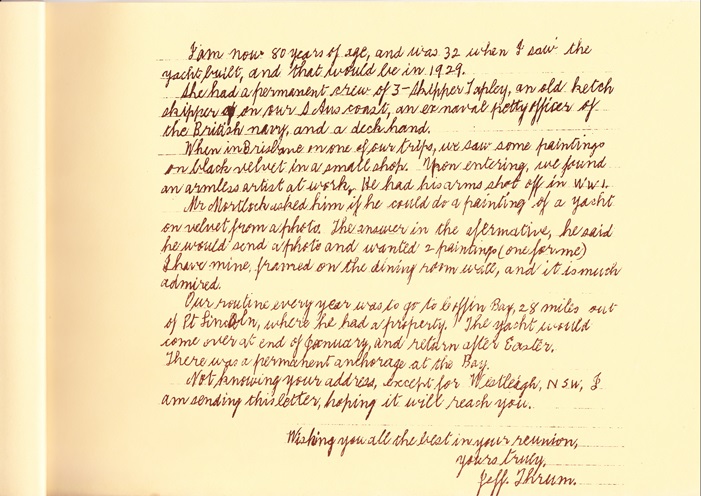 I am now 80 years of age, and was 32 when I saw the
yacht built, and that would be in 1929.
She had a permanent crew of 3 - skipper Tapley, an old ketch
skipper on our S Aus coast, an ex naval petty officer of
the British navy, and a deckhand.
When in Brisbane on one of our trips, we saw some paintings
on black velvet in a small shop. Upon entering, we found
an armless artist at work. He had his arms shot off in WW1.
Mr Mortlock asked him if he could do a painting of a yacht
on velvet from a photo. The answer in the afirmative, he said
he would send a photo and wanted 2 paintings (one for me)
I have mine, framed on the dining room wall, and it is much
admired.
Our routine every year was to go to Coffin Bay, 28 miles out
of Pt Lincoln, where he had a property. The yacht would
come over at end of January, and return after Easter.
There was a permanent anchorage at the Bay.
Not knowing your address, except for Westleigh, NSW, I
am sending this letter, hoping it will reach you.
Wishing you all the best in your reunion,
yours truly,
Jeff. Thrum.